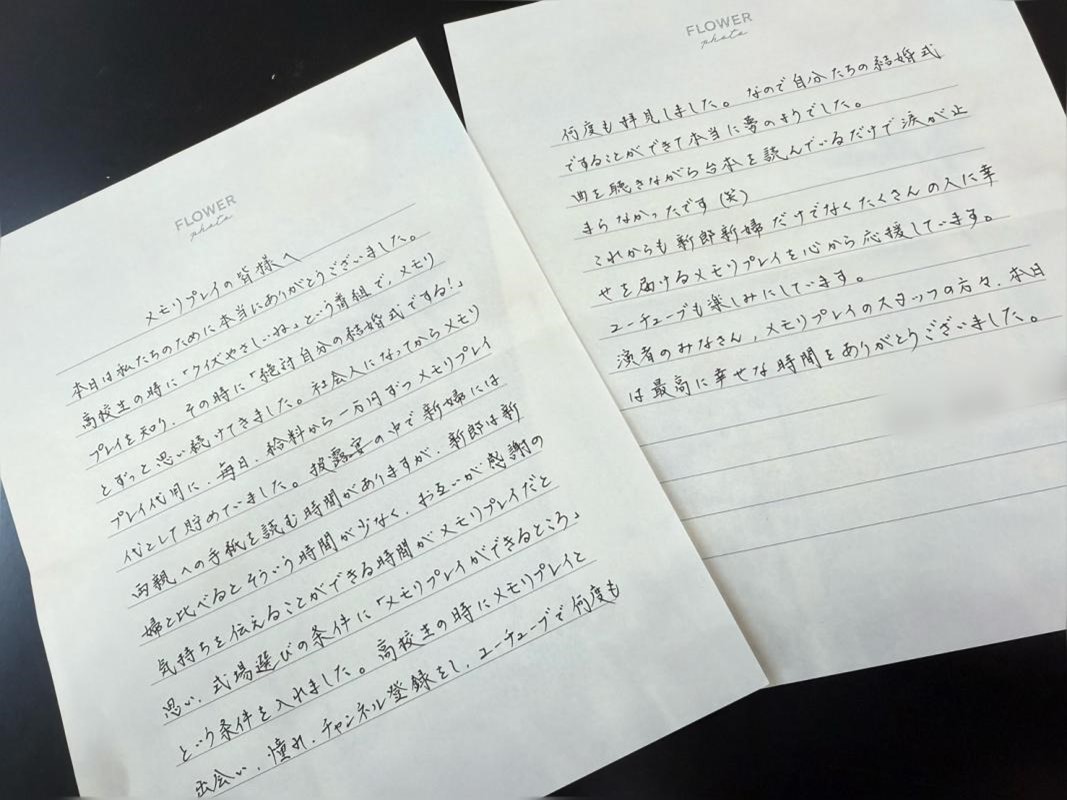 FLOWER
photo
メモリプレイの皆様へ
本日は私たちのために本当にありがとうございました。
高校生の時に「クイズやさしいね」という番組で、メモリ
プレイを知り、その時に「絶対自分の結婚式でする!」
とずっと思い続けてきました。社会人になってからメモリ
プレイ代用に、毎日、給料から一万円ずつメモリプレイ
代として貯めていました。披露宴の中で新婦には
両親への手紙を読む時間がありますが、新郎は新
婦と比べるとそういう時間が少なく、お互いが感謝の
気持ちを伝えることができる時間がメモリプレイだと
思い、式場選びの条件に「メモリプレイができるところ」
という条件を入れました。高校生の時にメモリプレイと
出会い、憧れ、チャンネル登録をし、ユーチューブで何度も
FLOWER
photo
何度も拝見しました。なので自分たちの結婚式
ですることができて本当に夢のようでした。
曲を聴きながら台本を読んでいるだけで涙が止
まらなかったです(笑)
これからも新郎新婦だけでなくたくさんの人に幸
せを届けるメモリプレイを心から応援しています。
ユーチューブも楽しみにしています。
演者のみなさん、メモリプレイのスタッフの方々、本日
は最高に幸せな時間をありがとうございました。